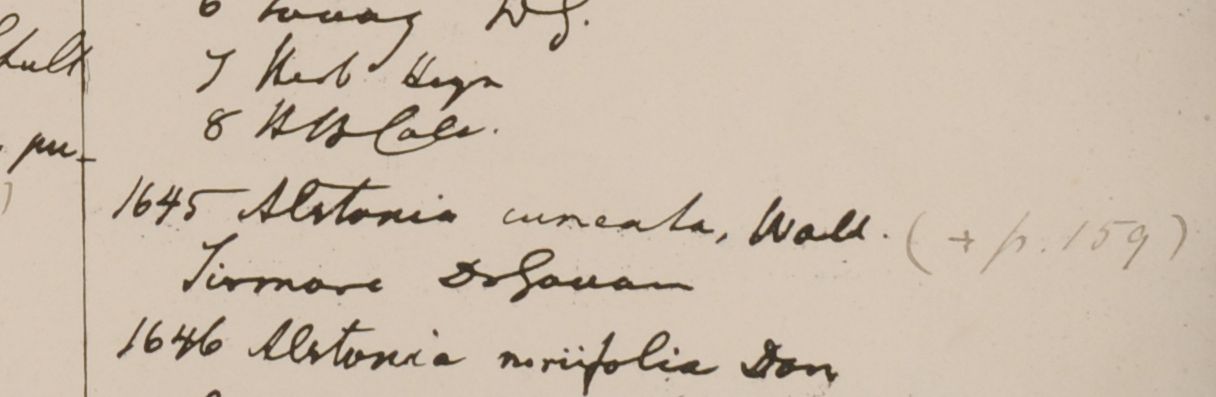 6 Tavoy W.G.
7 Herb Heyn
8 HBCalc.
1645 Alstonia cuneata, Wall. (+ p. 159)
Dr Govan
1646 Alstonia neriifolia Don
pu-